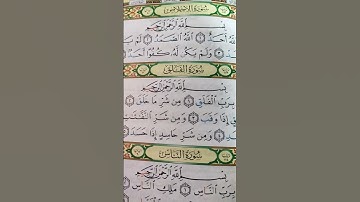 سُورَةُ الإِخْلَاصِ
بِسْمِ اللَّهِ الرَّحْمَٰنِ الرَّحِيمِ
أَحَدٌ ١ اللَّهُ الصَّمَدُ ٢
وَلَمْ يَكُن لَّهُ كُفُوًا أَحَدٌ
سُورَةُ الفَلَقِ
بِسْمِ اللَّهِ الرَّحْمَٰنِ الرَّحِيمِ
بِرَبِّ الْفَلَقِ ١ مِن شَرِّ مَا خَلَقَ ٢
إِذَا وَقَبَ ٣ وَمِن شَرِّ النَّفَّاثَاتِ
وَمِن شَرِّ حَاسِدٍ إِذَا حَسَدَ
سُورَةُ النَّاسِ
بِسْمِ اللَّهِ الرَّحْمَٰنِ الرَّحِيمِ
بِرَبِّ النَّاسِ ١ مَلِكِ النَّاسِ